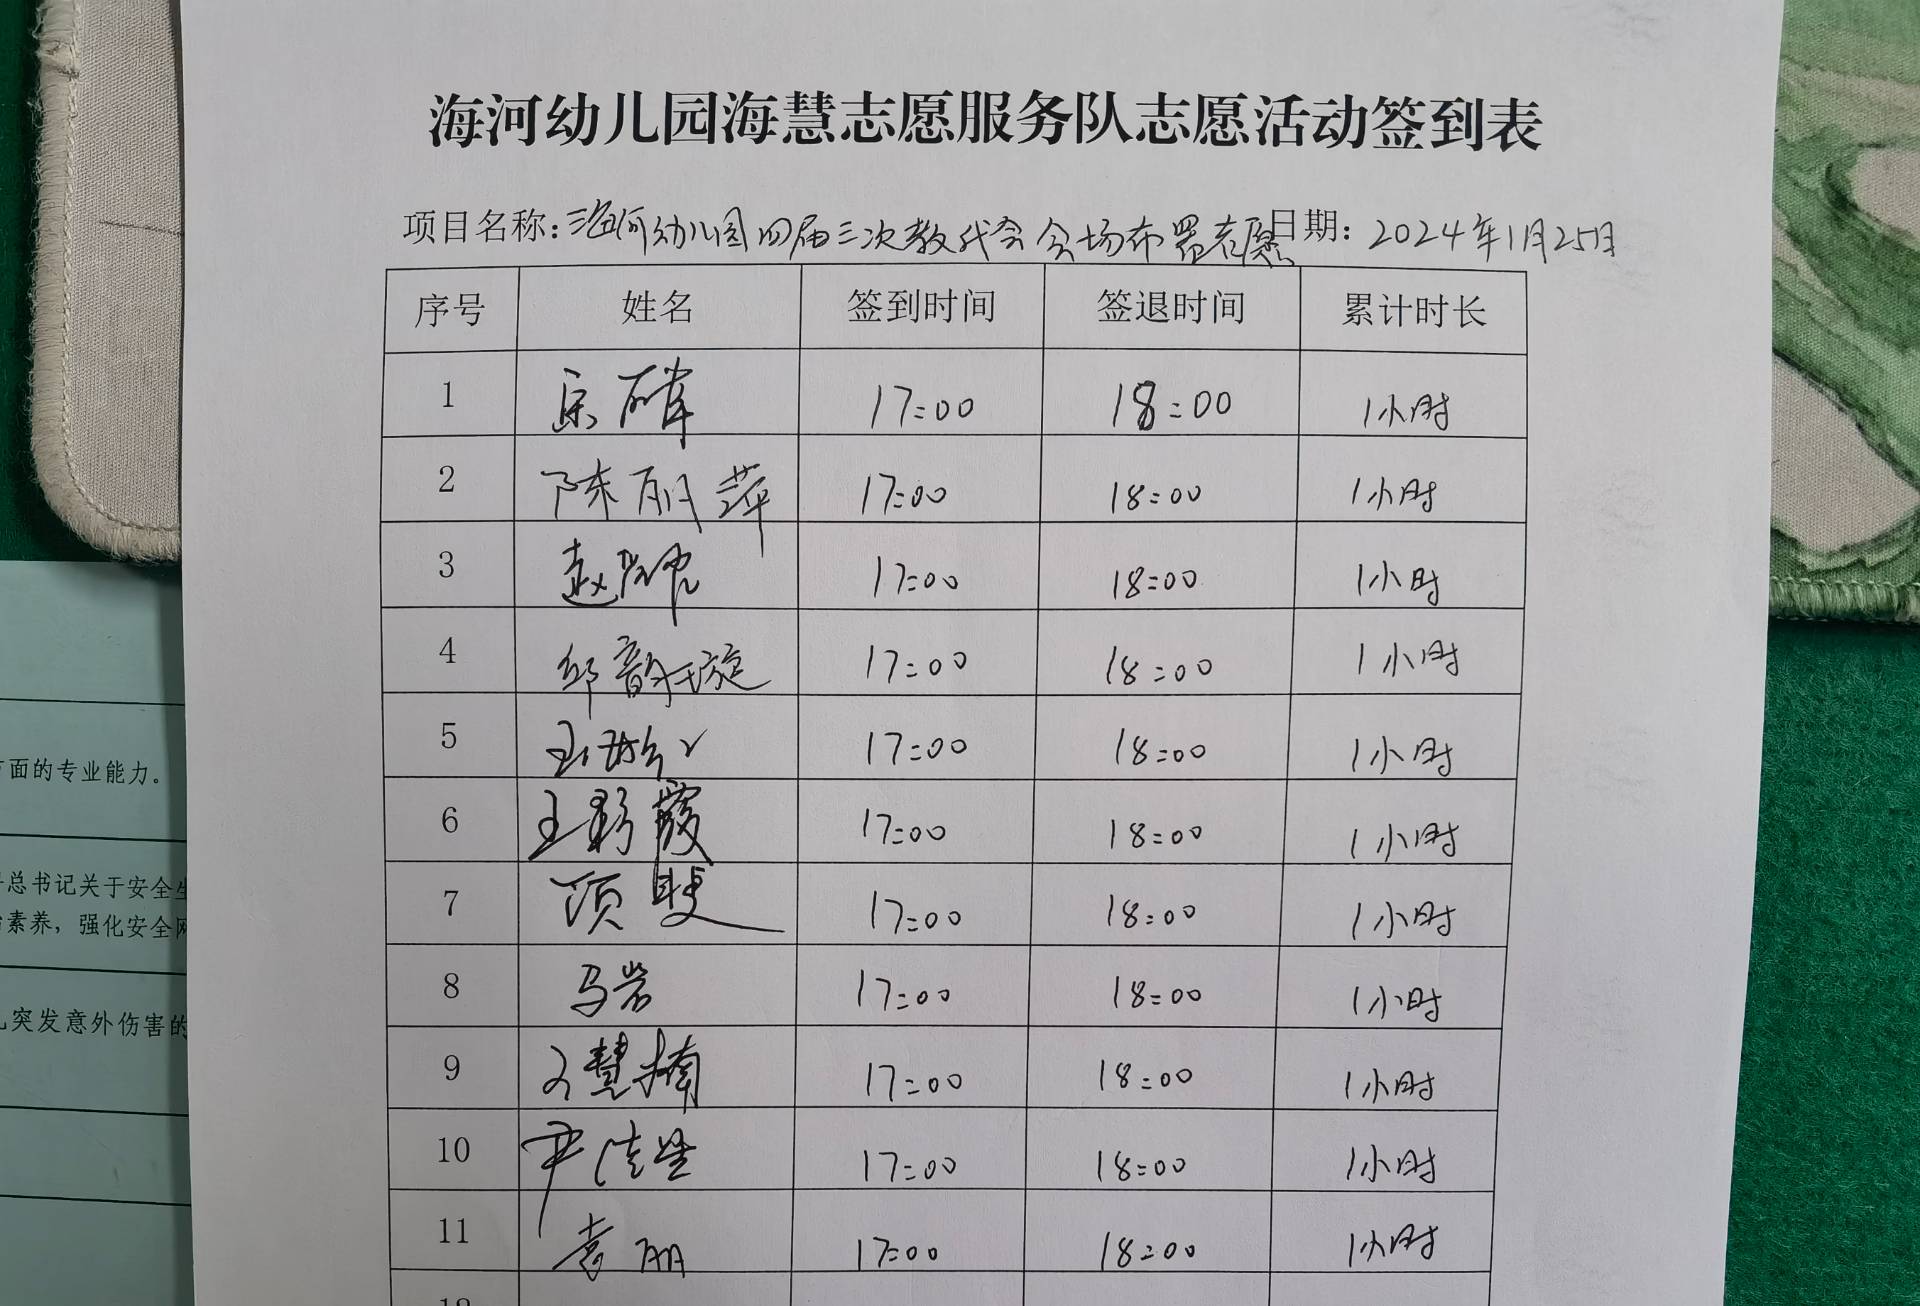 海河幼儿园海慧志愿服务队志愿活动签到表
项目名称:海河幼儿园四届三次教代会会场布置志愿 日期: 2024年1月25日
序号 姓名 签到时间 签退时间 累计时长
1 17:00 18:00 1小时
2 陈丽萍 17:00 18:00 1小时
3 17:00 18:00 1小时
4 邱韵璇 17:00 18:00 1小时
5 17:00 18:00 1小时
6 王彩霞 17:00 18:00 1小时
7 项斐 17:00 18:00 1小时
8 马岩 17:00 18:00 1小时
9 17:00 18:00 1小时
10 17:00 18:00 1小时
11 袁丽 17:00 18:00 1小时
12
面的专业能力。
总书记关于安全生
素养，强化安全网
突发意外伤害的